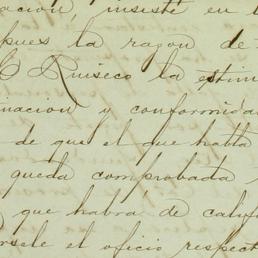 acion, insiste en l
pues la razon de
Ruiseco la estim
inacion y conformida
de que el que habla
queda comprobada
que habrá de calif
rsele el oficio respect